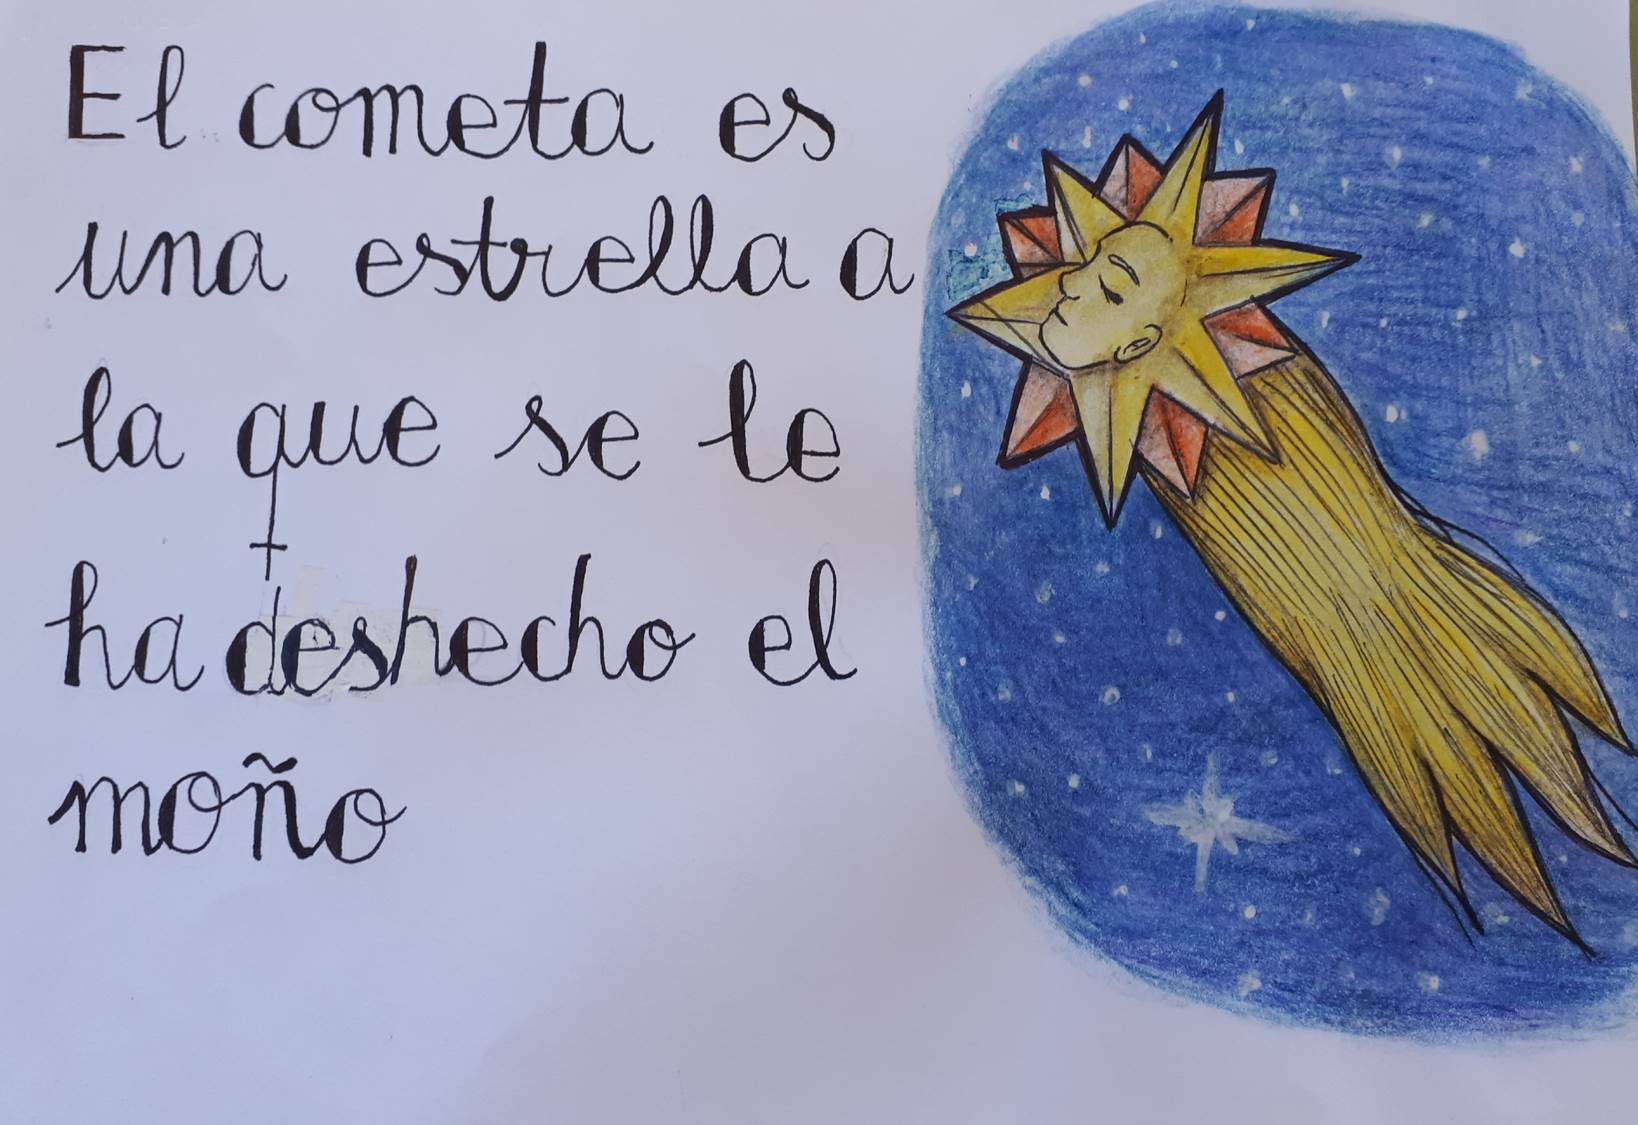 El cometa es
una estrella a
la que se le
ha deshecho el
moño